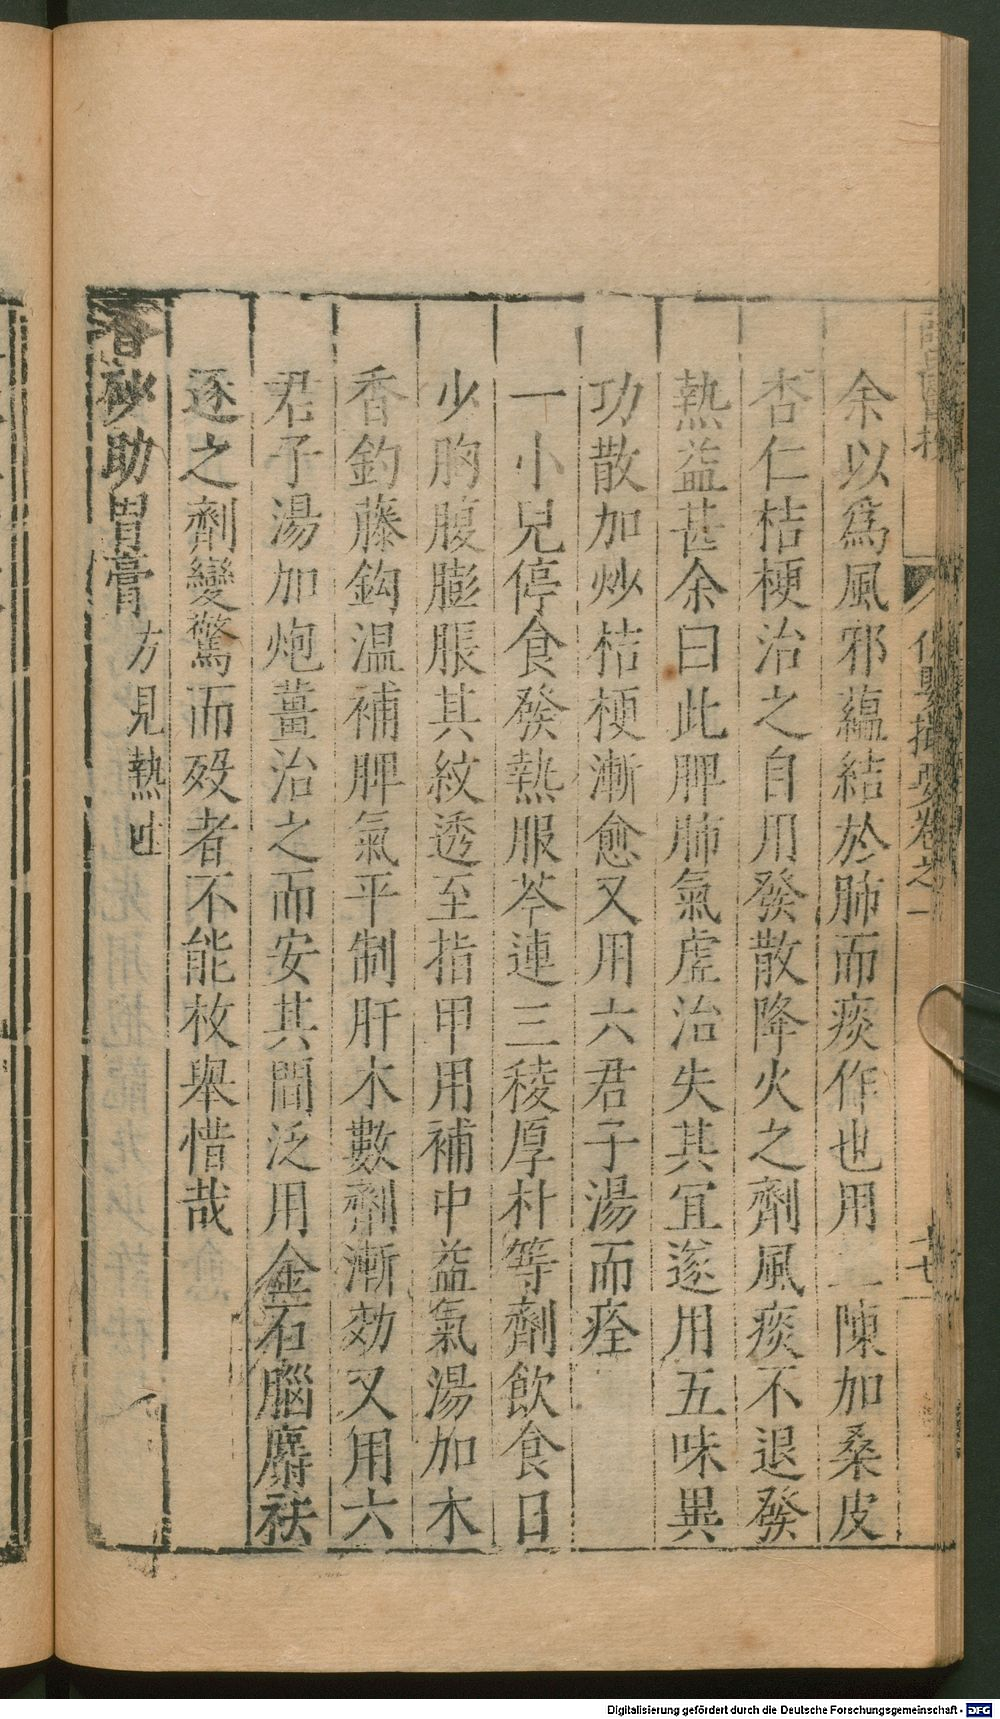 保嬰撮要卷之一
十七
余以爲風邪藴結於肺而痰作也用二陳加桑皮
杏仁桔梗治之自用發散降火之劑風痰不退發
熱益甚余曰此脾肺氣虛治失其宜遂用五味異
功散加炒桔梗漸愈又用六君子湯而痊
一小兒停食發熱服芩連三稜厚朴等劑飲食日
少胸腹膨脹其紋透至指甲用補中益氣湯加木
香釣藤鈎温補脾氣平制肝木數劑漸効又用六
君子湯加炮薑治之而安其間泛用金石腦麝祛
逐之劑變驚而殁者不能枚舉惜哉
香砂助胃膏方見熱吐
Digitalisierung gefördert durch die Deutsche Forschungsgemeinschaft - DFG